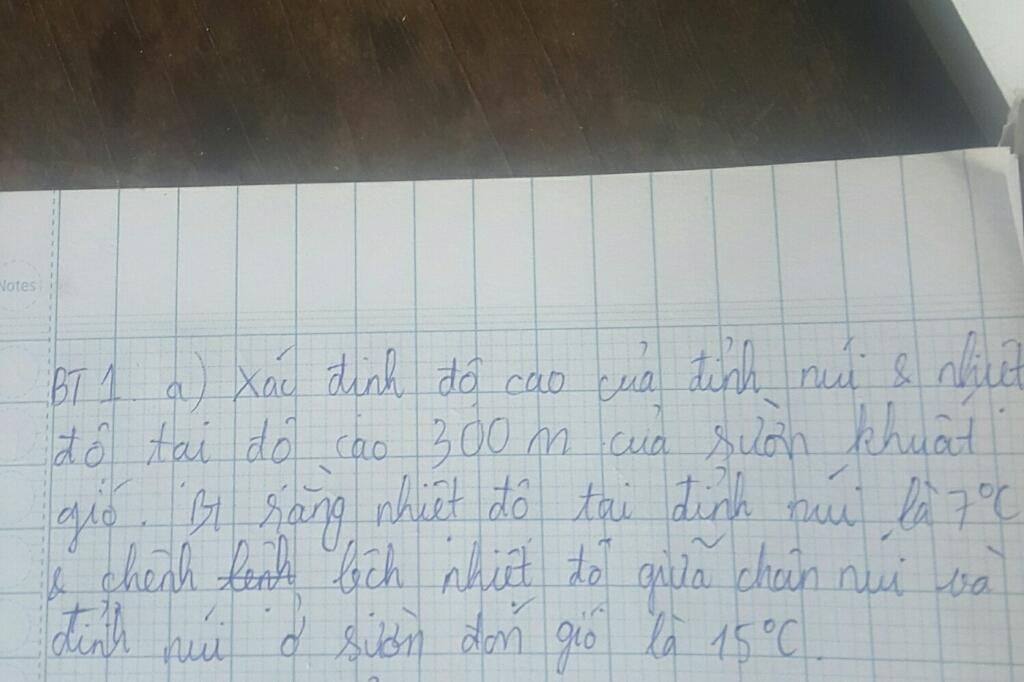 Notes
BT1. a) Xác định độ cao của đỉnh núi & nhiệt
độ tại độ cao 300m của sườn khuất
gió. Bt rằng nhiệt độ tại đỉnh núi là 7°C
& chênh lệch nhiệt độ giữa chân núi và
đỉnh núi ở sườn đón gió là 15°C.